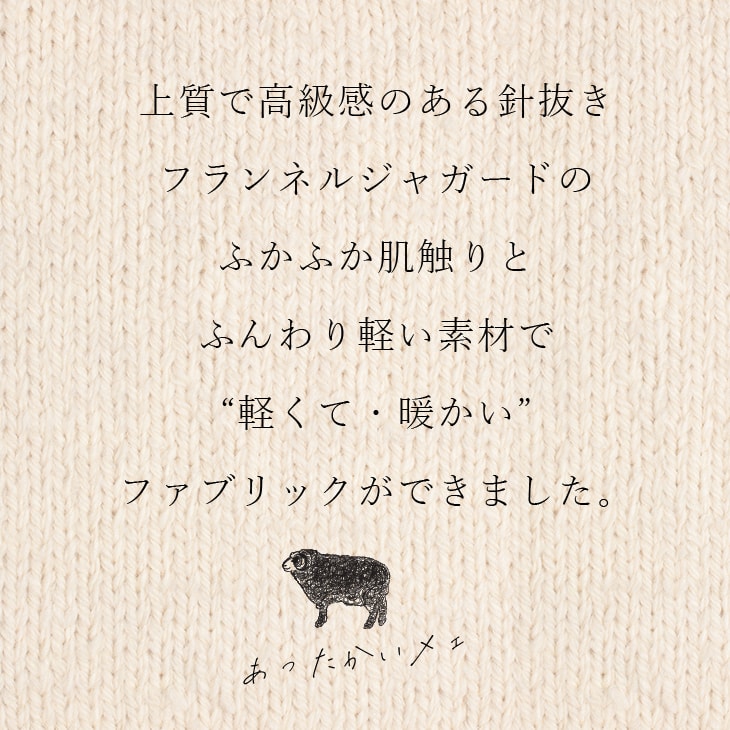 上質で高級感のある針抜き
フランネルジャガードの
ふかふか肌触りと
ふんわり軽い素材で
“軽くて・暖かい”
ファブリックができました。
あったかいメェ